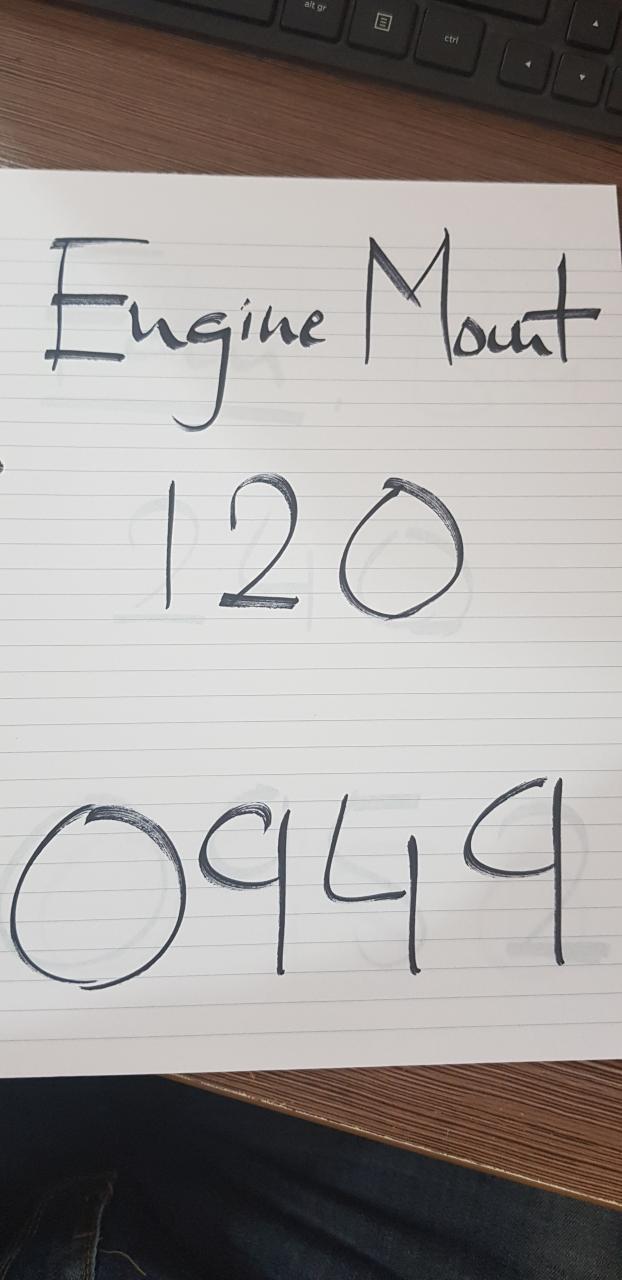 alt gr
ctrl
Engine Mount
120
0949